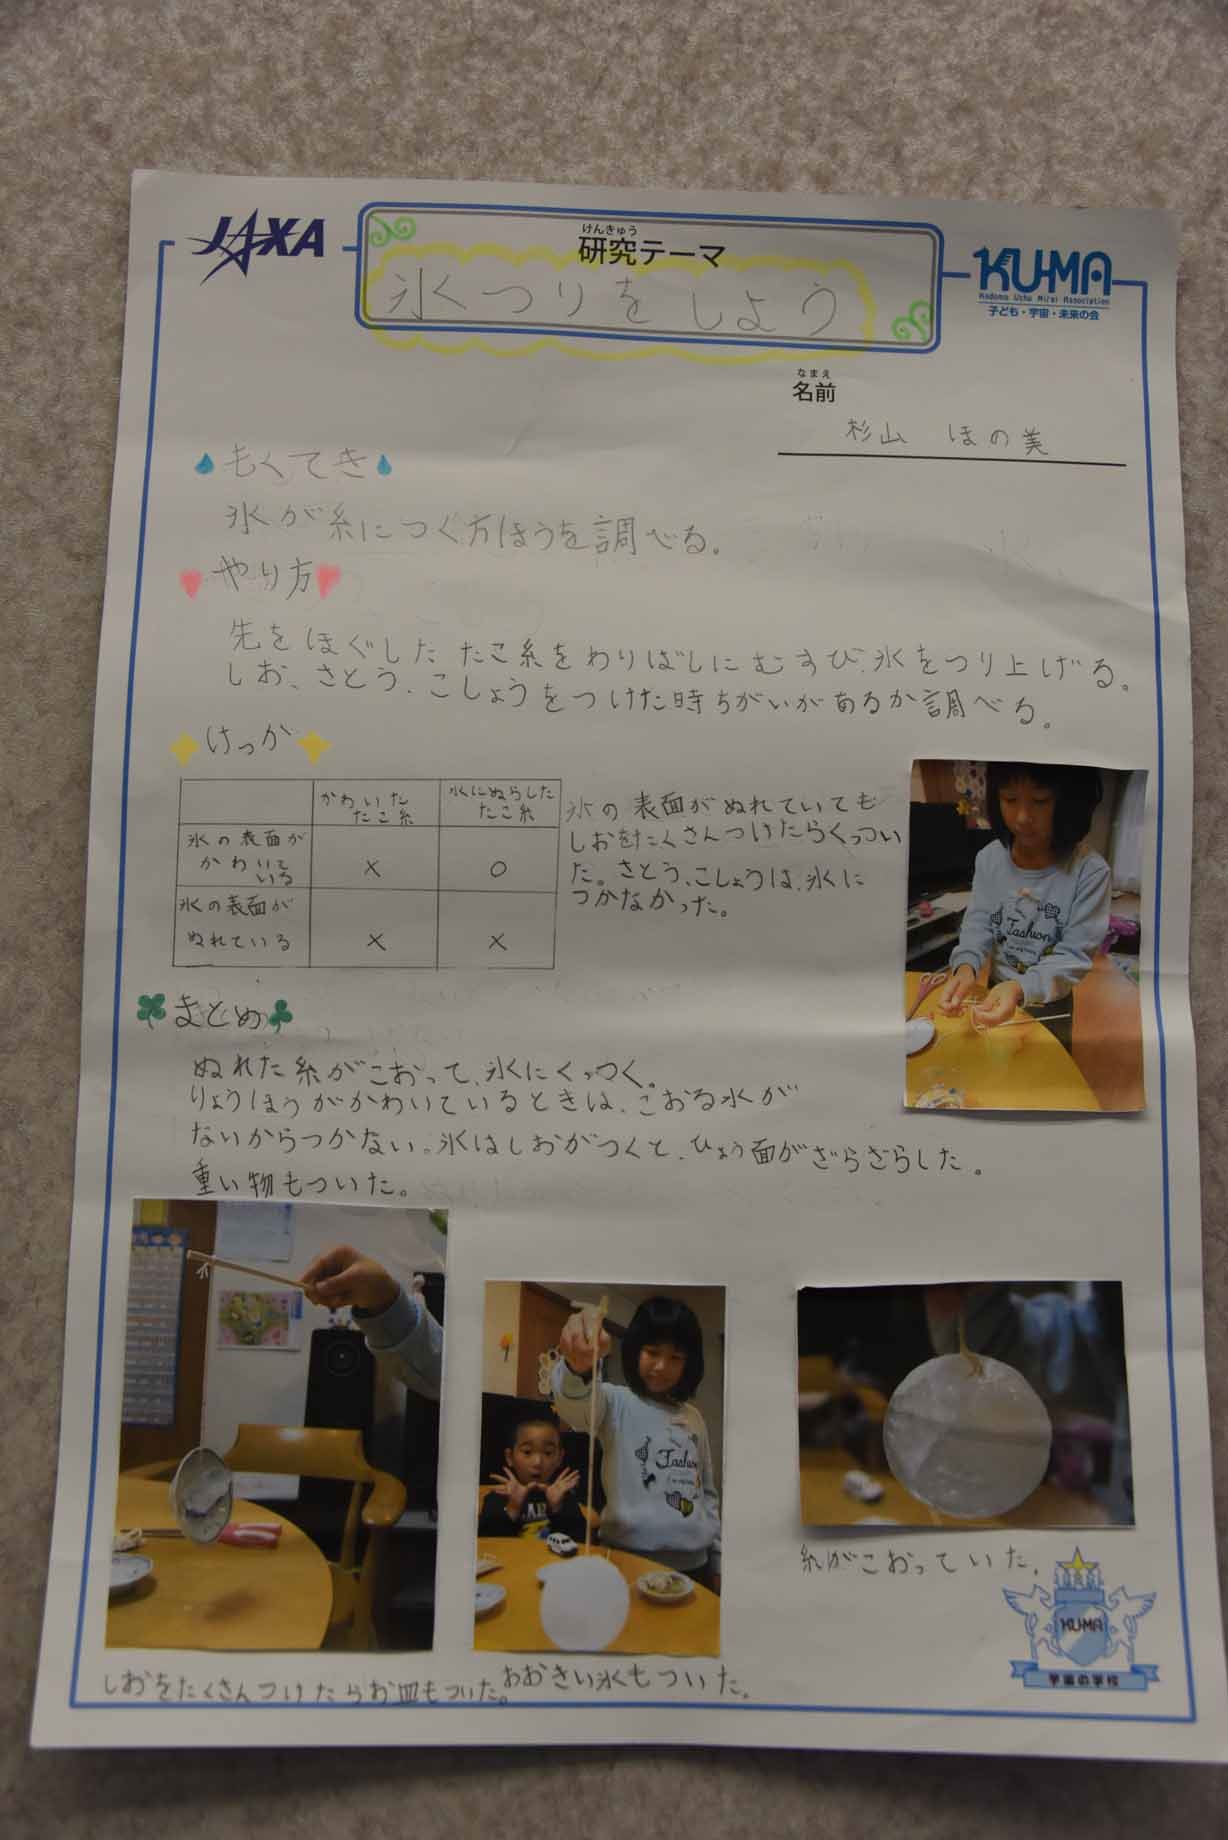 JAXA
けんきゅう
研究テーマ
氷つりをしよう
KU-MA
Kodomo Uchu Mirai Association
子ども・宇宙・未来の会
なまえ
名前
杉山 ほの美
もくてき
氷が糸につく方ほうを調べる。
やり方
先をほぐしたたこ糸をわりばしにむすび、氷をつり上げる。
しお、さとう、こしょうをつけた時ちがいがあるか調べる。
けっか
かわいた
たこ糸
水にぬらした
たこ糸
氷の表面が
かわいて
いる
×
○
氷の表面が
ぬれている
×
×
氷の表面がぬれていても
しおをたくさんつけたらくっつい
た。さとう、こしょうは、氷に
つかなかった。
まとめ
ぬれた糸がこおって、氷にくっつく。
りょうほうがかわいているときは、こおる水が
ないからつかない。氷はしおがつくと、ひょう面がざらざらした。
重い物もついた。
Fashion
Fashion
糸がこおっていた。
KUMA
宇宙の学校
しおをたくさんつけたらお皿もついた。
おおきい氷もついた。